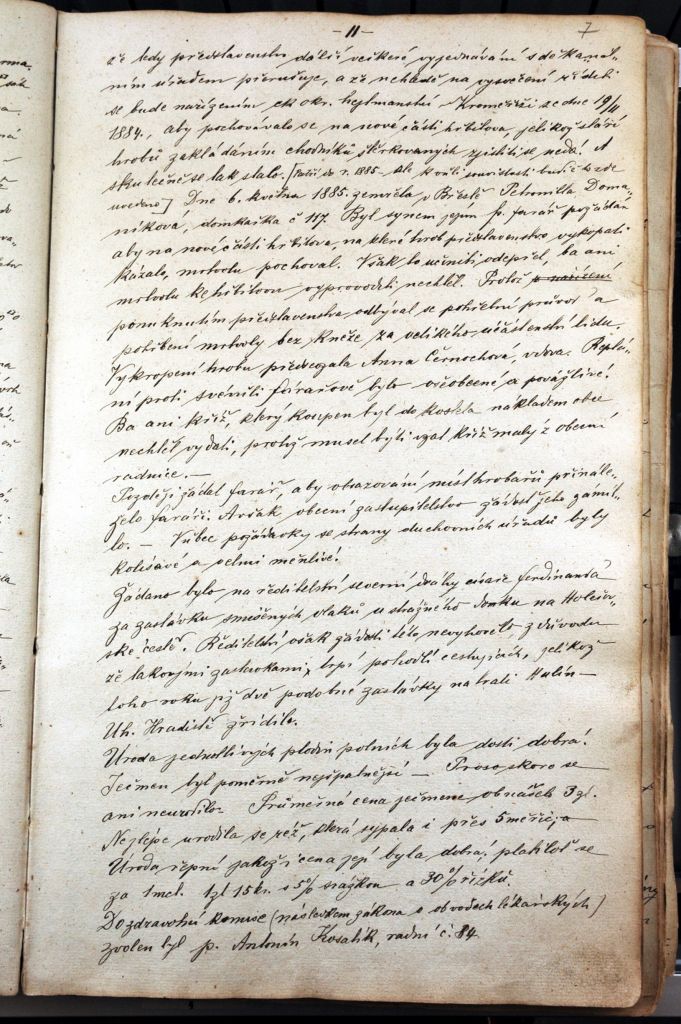 - 11 -
7
že tedy představenstvo další veškeré vyjednávání s děkanal-
ním úřadem přerušuje, a že nehledě na vysvěcení říditi
se bude nařízením ck okr. hejtmanství v Kroměříži ze dne 19/11
1884., aby pochovávalo se na nové části hřbitova, jelikož stáří
hrobů zakládáním chodníků štěrkovaných zjistiti se nedá! A
skutečně se tak stalo. [Patří do r. 1885 - ale k vůli souvislosti budiž to zde
uvedeno] Dne 6. května 1885. zemřela v Břestě Petronilla Doma-
níková, domkařka č 117. Byl synem jejím p. farář požádán
aby na nové části hřbitova, na které hrob představenstvo vykopati
kázalo, mrtvolu pochoval. Však to učiniti odepřel, ba ani
mrtvolu ke hřbitovu vyprovoditi nechtěl. Protož
ponuknutím představenstva odbýval se pohřební průvod a
pohřbení mrtvoly bez kněze za velikého účastenství lidu.
Vykropení hrobu předsevzala Anna Černochova, vdova. Reptá-
ní proti svévůli farářově bylo všeobecné a povážlivé!
Ba ani kříž, který koupen byl do kostela nákladem obce
nechtěl vydati, protož musel býti vzat kříž malý z obecní
radnice. -
Později žádal farář, aby obsazování míst hrobařů přinále-
želo faráři. Avšak obecní zastupitelstvo žádost jeho zamít-
lo. - Vůbec požadavky se strany duchovních úřadů byly
kolísavé a velmi měnlivé!
Žádáno bylo na ředitelství severní dráhy císaře Ferdinanda
za zastávku smíšených vlaků u strážného domku na Holešov-
ské cestě. Ředitelství však žádosti této nevyhovělo, z důvodu
že takovými zastávkami, trpí pohodlí cestujících, jelikož
toho roku již dvě podobné zastávky na trati Hulín -
Uh. Hradiště zřídilo.
Úroda jednotlivých plodin polních byla dosti dobrá!
Ječmen byl poměrně nejšpatnější - Proso skoro se
ani neurodilo. Průměrná cena ječmene obnášela 3 zl.
Nejlépe urodila se rež, která sypala i přes 5 měřic
Úroda řepní jakož i cena její byla dobrá; platiloť se
za 1 met. 1 zl 15 kr. s 5% srážkou a 30% řízků.
Do zdravotní komise (následkem zákona o obvodech lékařských)
zvolen byl p. Antonín Kosalík, radní č. 84